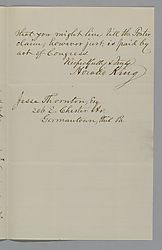 that you might live till the Porter
claim, however just, is paid by
act of Congress.
Respectfully & truly
Horatio King
Jesse Thornton, Esq
206 E. Chester Ave.
Germantown, Phil. Pa.